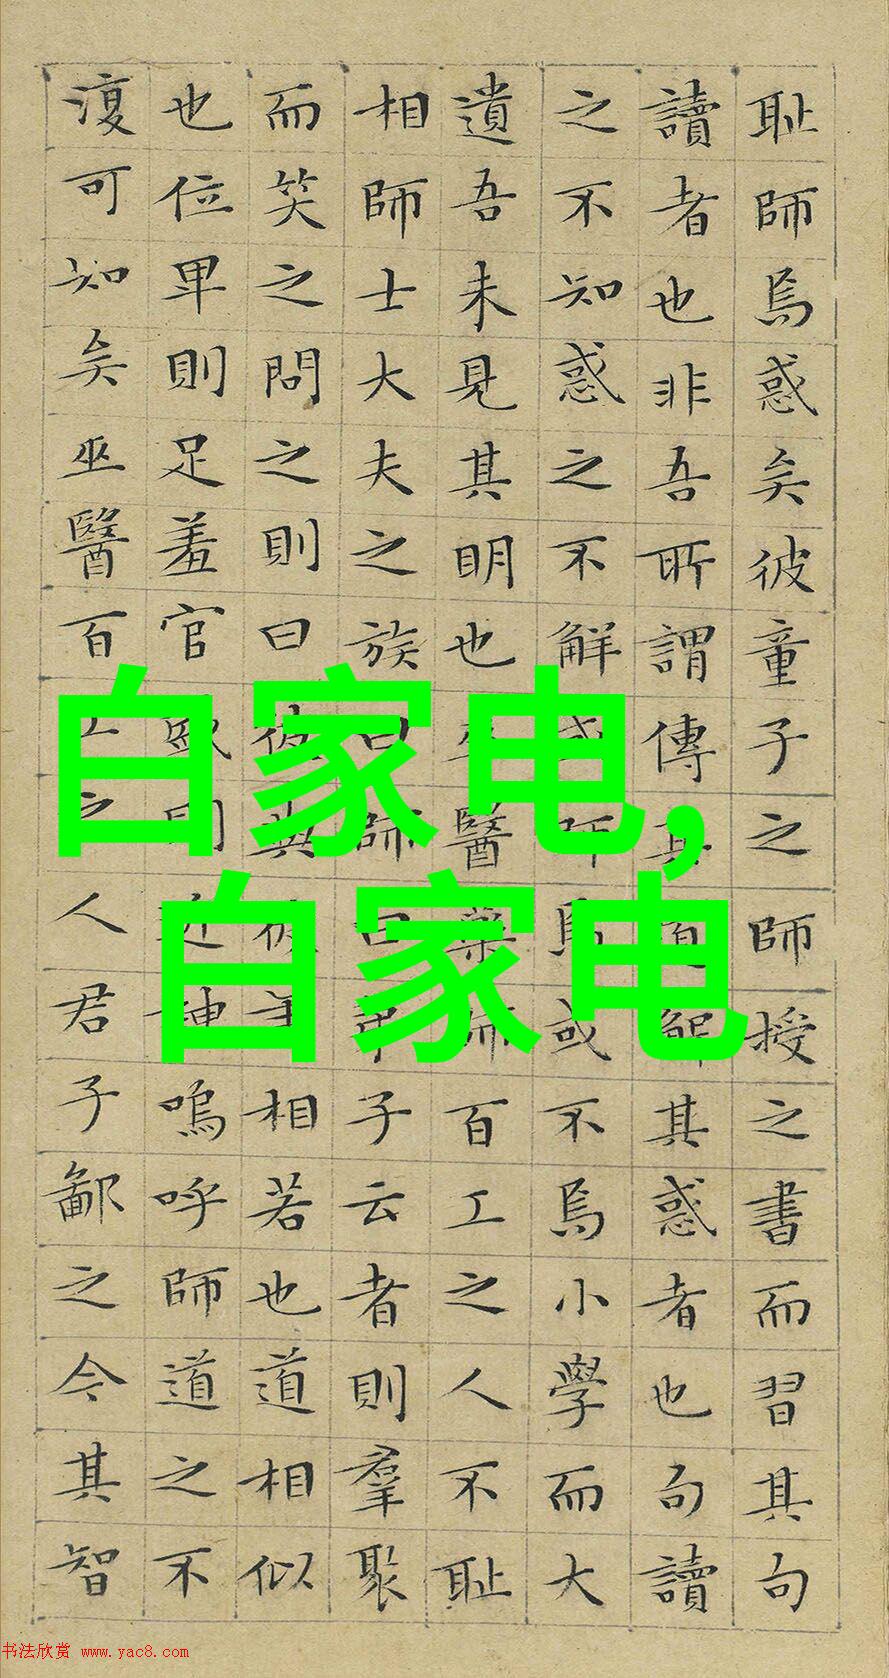 耻師焉惑矣彼童子之師授之書而習其句
讀者也非吾所謂傳其道解其惑者也句讀
之不知惑之不解或師焉或不焉小學而大
遺吾未見其明也巫醫藥師百工之人不耻
相師士大夫之族曰師曰弟子云者則羣聚
而笑之問之則曰彼與彼年相若也道相似
也位卑則足羞官盛則近神嗚呼師道之不
復可知矣巫醫百工之人君子鄙之今其智
自家电,
自家电
书法欣赏 www.yac8.com